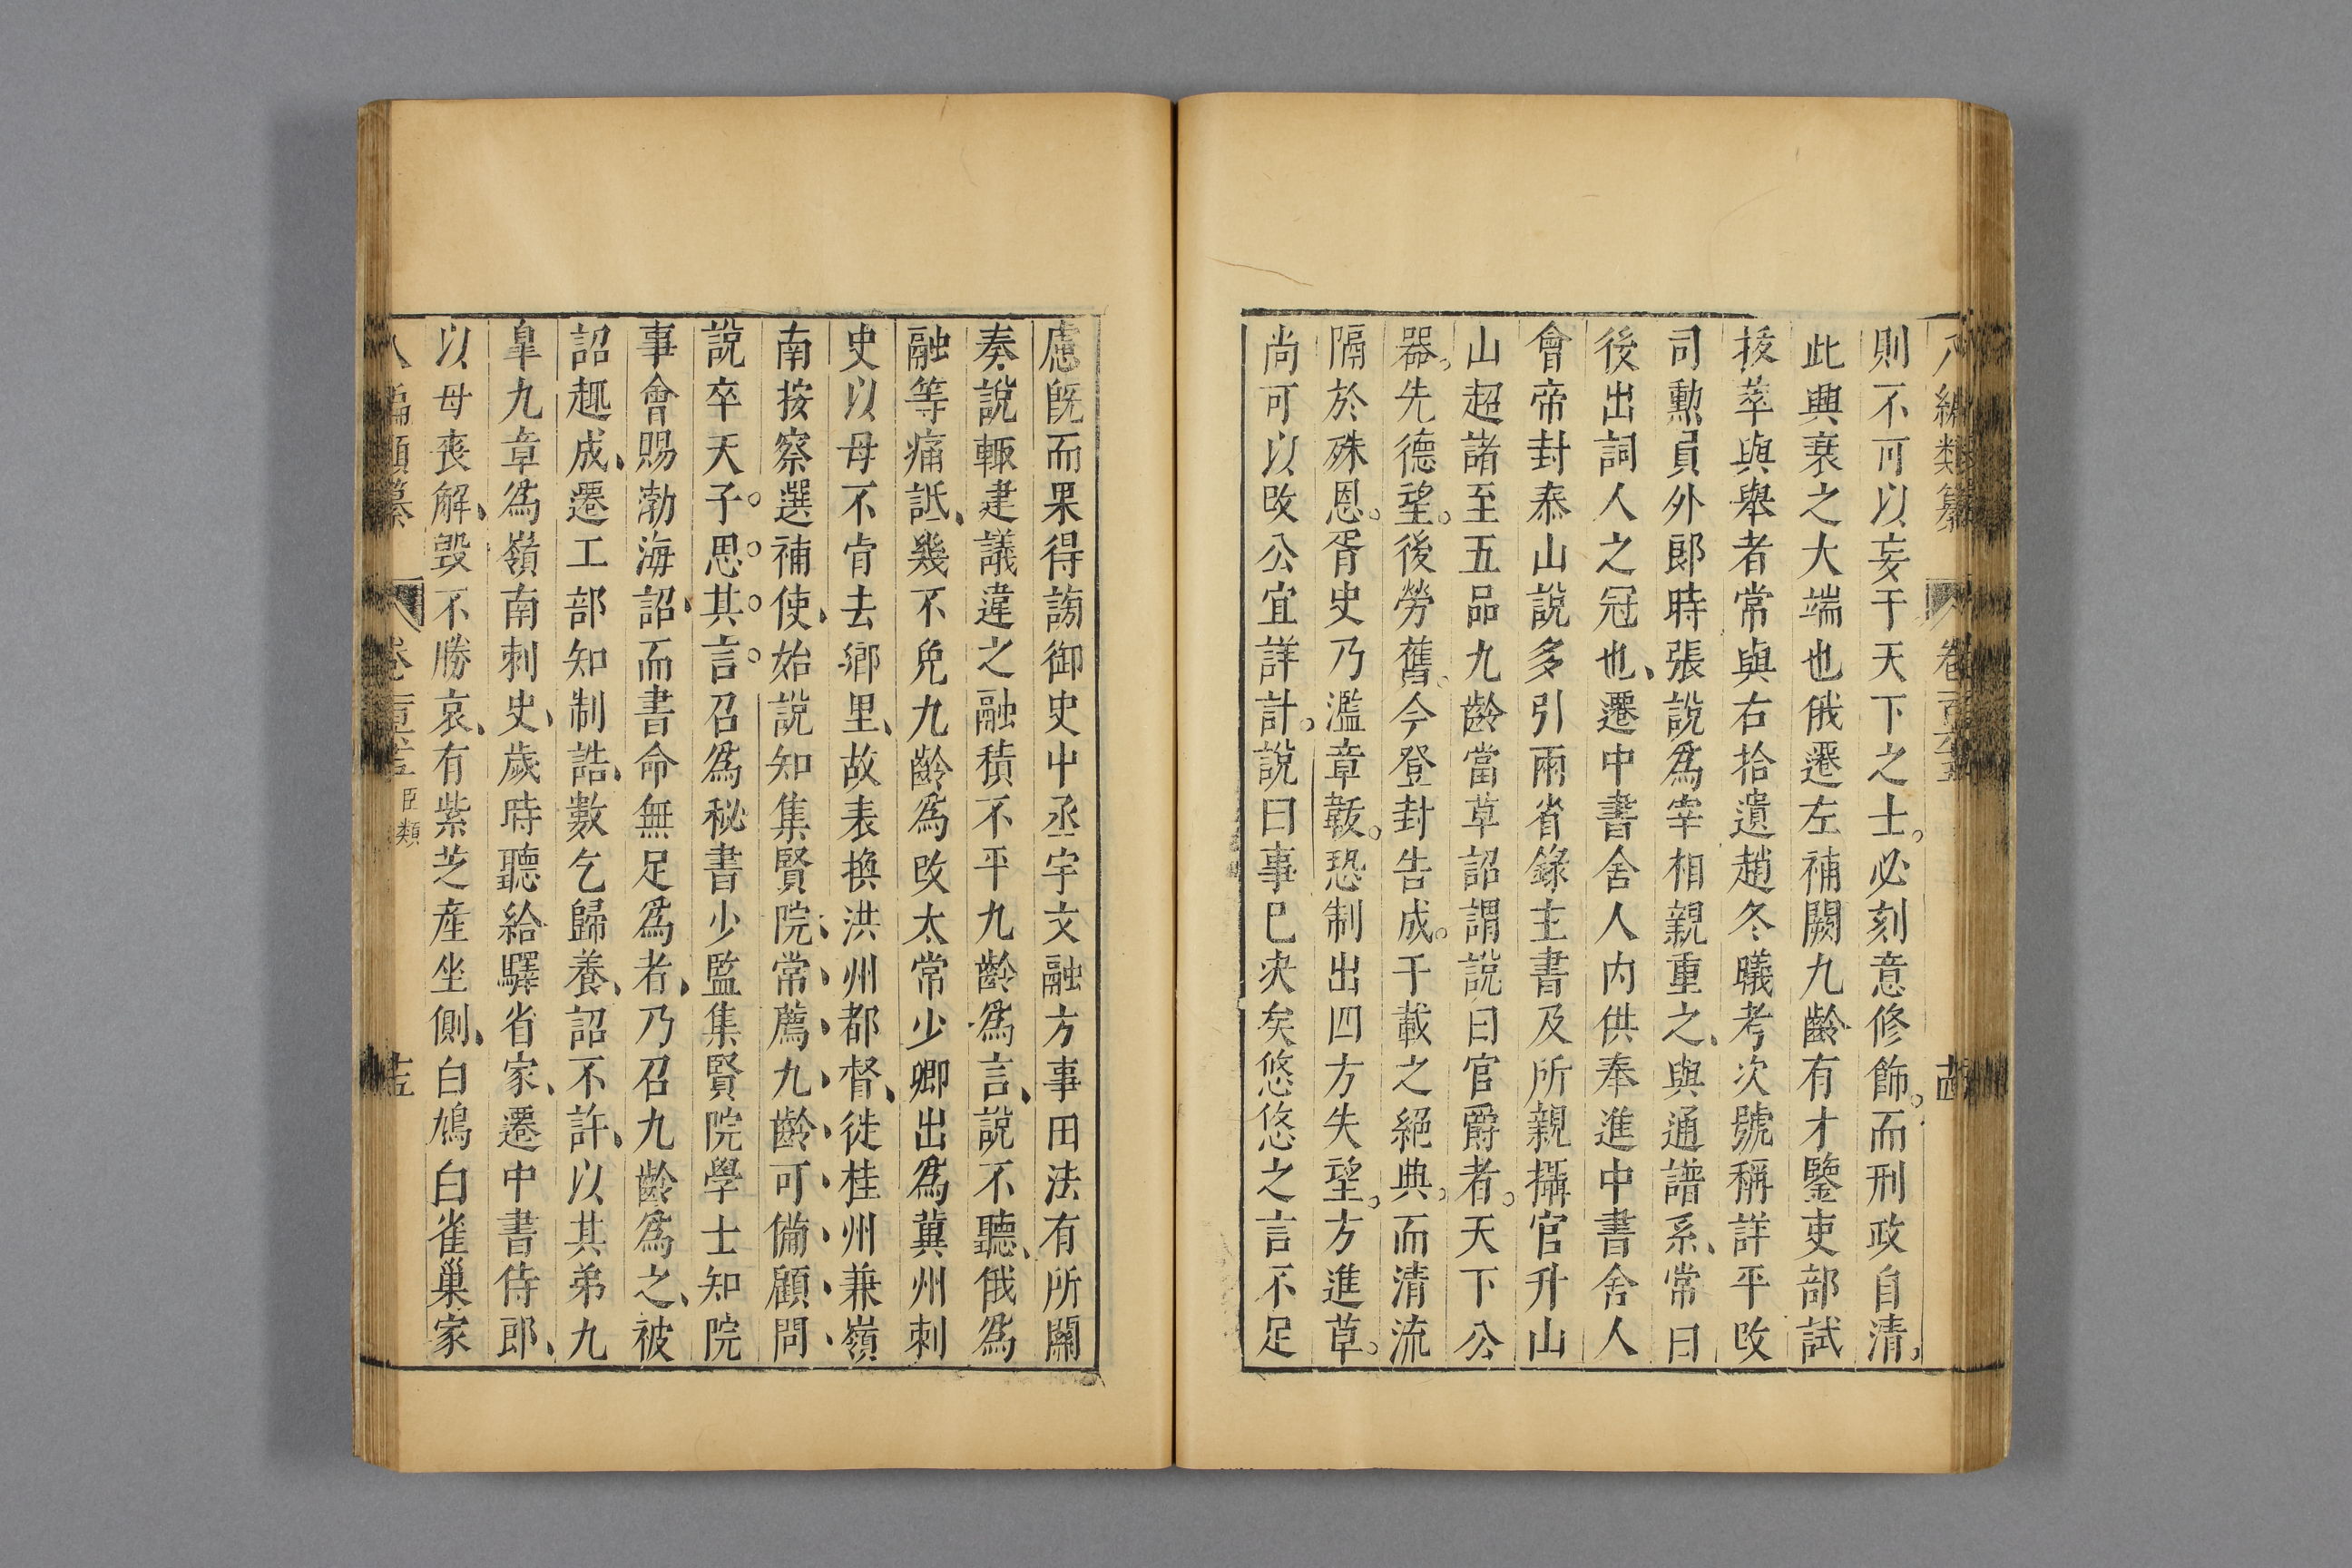 編類纂 卷一百六十五 十四
則不可以妄干天下之士。必刻意修飾。而刑政自清、
此興衰之大端也俄遷左補闕九齡有才鑒吏部試
拔萃與舉者常與右拾遺趙冬曦考次號稱詳平改
司勲員外郎時張說爲宰相親重之、與通譜系、常曰
後出詞人之冠也、遷中書舍人內供奉進中書舍人
會帝封泰山說多引兩省錄主書及所親攝官升山
山超諸至五品九齡當草詔謂說曰官爵者。天下公
器。先德望。後勞舊。今登封告成。千載之絕典。而清流
隔於殊恩。胥史乃濫章韍。恐制出四方失望。方進草。
尚可以改公宜詳計。說曰事已决矣悠悠之言不足
慮既而果得謗御史中丞宇文融方事田法有所關
奏說輒建議違之融積不平九齡爲言、說不聽、俄爲
融等痛詆、幾不免九齡爲改太常少卿出爲冀州刺
史以母不肯去鄉里、故表換洪州都督、徙桂州兼嶺
南按察選補使、始說知集賢院、常薦、九齡、可備、顧問、
說卒天子。思。其。言。召爲秘書少監集賢院學士知院
事會賜渤海詔、而書命無足爲者、乃召九齡爲之、被
詔趣成、遷工部知制誥、數乞歸養、詔不許、以其弟九
皐九章爲嶺南刺史、歲時聽給驛省家、遷中書侍郎、
以母喪解、毀不勝哀、有紫芝產坐側、白鳩白雀巢家
編類纂 卷 臣類 十五